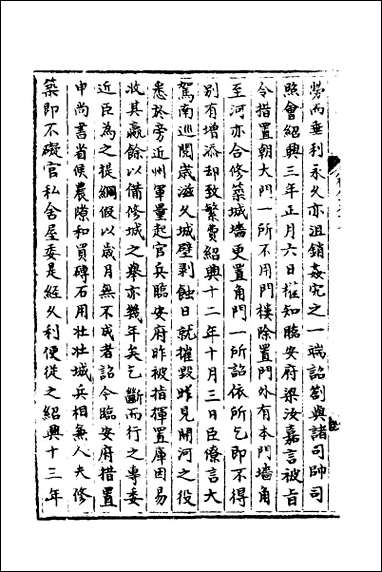 勞而垂利永久亦沮銷姦宄之一端詔劄與諸司帥司
照會紹興三年正月六日權知臨安府梁汝嘉言被旨
令措置朝大門一所不用門樓除置門外有本門墻角
至河亦合修築城墻更置角門一所詔依所乞即不得
别有增添却致繁費紹興十二年十月三日臣僚言大
駕南巡閲歳滋久城壁剥蝕日就摧毁昨見開河之役
悉於旁近州軍量起官兵臨安府昨被指揮置庫回易
收其贏餘以備修城之舉亦幾年矣乞斷而行之專委
近臣為之提綱假以歳月無不成者詔令臨安府措置
申尚書省候農隙和買磚石用壮壮城兵相無人夫修
築即不礙官私舍屋委是經久利便從之紹興十三年